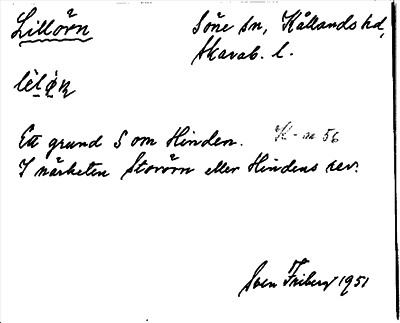 Lillörn
Söne sn, Kållands hd,
Skarab. l.
Ett grund S om Hinden.
I närheten Storörn eller Hindens rev.
Sven Friberg 1951